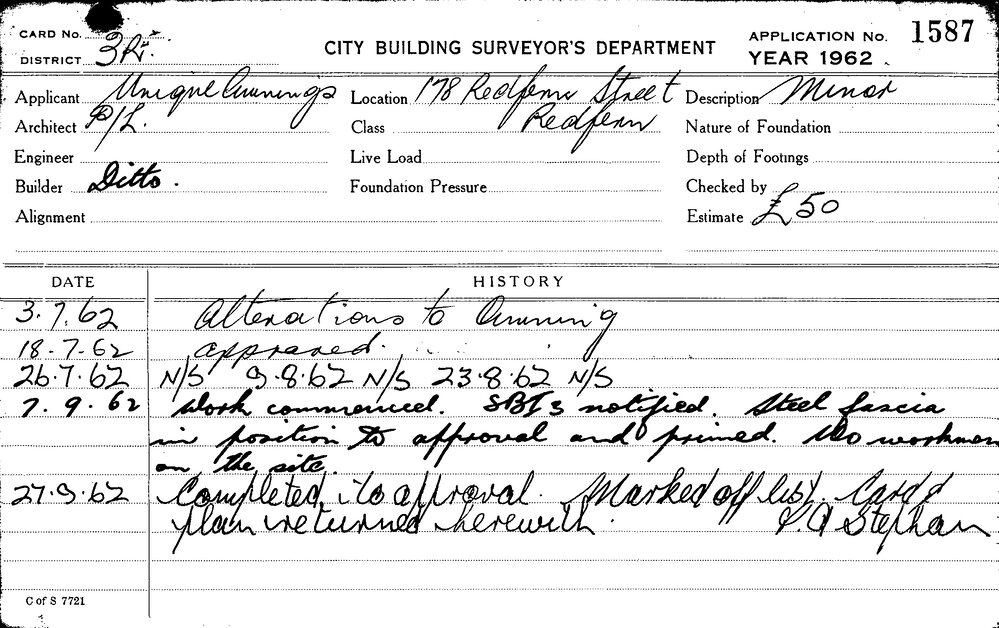 CARD No.
DISTRICT 3Ri.
CITY BUILDING SURVEYOR'S DEPARTMENT
APPLICATION No. 1587
YEAR 1962
Applicant Unique Awnings
Location 178 Redfern Street
Description Minor
Architect P/L.
Class Redfern
Nature of Foundation
Engineer
Live Load
Depth of Footings
Builder Ditto.
Foundation Pressure
Checked by
Alignment
Estimate £50
DATE
HISTORY
3.7.62 Alterations to Awning
18-7-62 approved.
26.7.62 N/S 9.8.62 N/S 23.8.62 N/S
7.9.62 Work commenced. SBI 3 notified. Steel fascia
in position to approval and primed. No workmen
on the site.
27.9.62 Completed to approval. Marked off list. Card &
plan returned herewith. Stephan
C of S 7721